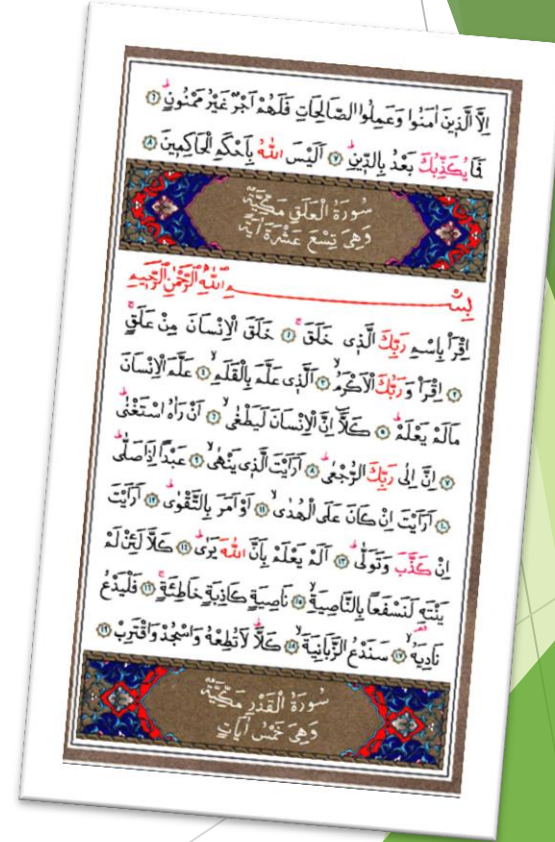 اِلَّا الَّذٖينَ اٰمَنُوا وَعَمِلُوا الصَّالِحَاتِ فَلَهُمْ اَجْرٌ غَيْرُ مَمْنُونٍۜ ﴿٦﴾
فَمَا يُكَذِّبُكَ بَعْدُ بِالدّٖينِۜ ﴿٧﴾ اَلَيْسَ اللّٰهُ بِاَحْكَمِ الْحَاكِمٖينَ ﴿٨﴾
سُورَةُ الْعَلَقِ مَكِّيَّةٌ
وَهِيَ تِسْعَ عَشْرَةَ اٰيَةً
بِسْمِ اللّٰهِ الرَّحْمٰنِ الرَّحٖيمِ
اِقْرَأْ بِاسْمِ رَبِّكَ الَّذٖى خَلَقَۚ ﴿١﴾ خَلَقَ الْاِنْسَانَ مِنْ عَلَقٍۚ
﴿٢﴾ اِقْرَأْ وَرَبُّكَ الْاَكْرَمُۙ ﴿٣﴾ اَلَّذٖى عَلَّمَ بِالْقَلَمِۙ ﴿٤﴾ عَلَّمَ الْاِنْسَانَ
مَالَمْ يَعْلَمْۜ ﴿٥﴾ كَلَّٓا اِنَّ الْاِنْسَانَ لَيَطْغٰىۙ ﴿٦﴾ اَنْ رَاٰهُ اسْتَغْنٰىۜ
﴿٧﴾ اِنَّ اِلٰى رَبِّكَ الرُّجْعٰىۜ ﴿٨﴾ اَرَاَيْتَ الَّذٖى يَنْهٰىۙ ﴿٩﴾ عَبْدًا اِذَا صَلّٰىۜ
﴿١٠﴾ اَرَاَيْتَ اِنْ كَانَ عَلَى الْهُدٰىۙ ﴿١١﴾ اَوْ اَمَرَ بِالتَّقْوٰىۜ ﴿١٢﴾ اَرَاَيْتَ
اِنْ كَذَّبَ وَتَوَلّٰىۜ ﴿١٣﴾ اَلَمْ يَعْلَمْ بِاَنَّ اللّٰهَ يَرٰىۜ ﴿١٤﴾ كَلَّا لَئِنْ لَمْ
يَنْتَهِ لَنَسْفَعًا بِالنَّاصِيَةِۙ ﴿١٥﴾ نَاصِيَةٍ كَاذِبَةٍ خَاطِئَةٍۚ ﴿١٦﴾ فَلْيَدْعُ
نَادِيَهُۙ ﴿١٧﴾ سَنَدْعُ الزَّبَانِيَةَۙ ﴿١٨﴾ كَلَّاۜ لَا تُطِعْهُ وَاسْجُدْ وَاقْتَرِبْ ﴿١٩﴾
سُورَةُ الْقَدْرِ مَكِّيَّةٌ
وَهِيَ خَمْسُ اٰيَاتٍ